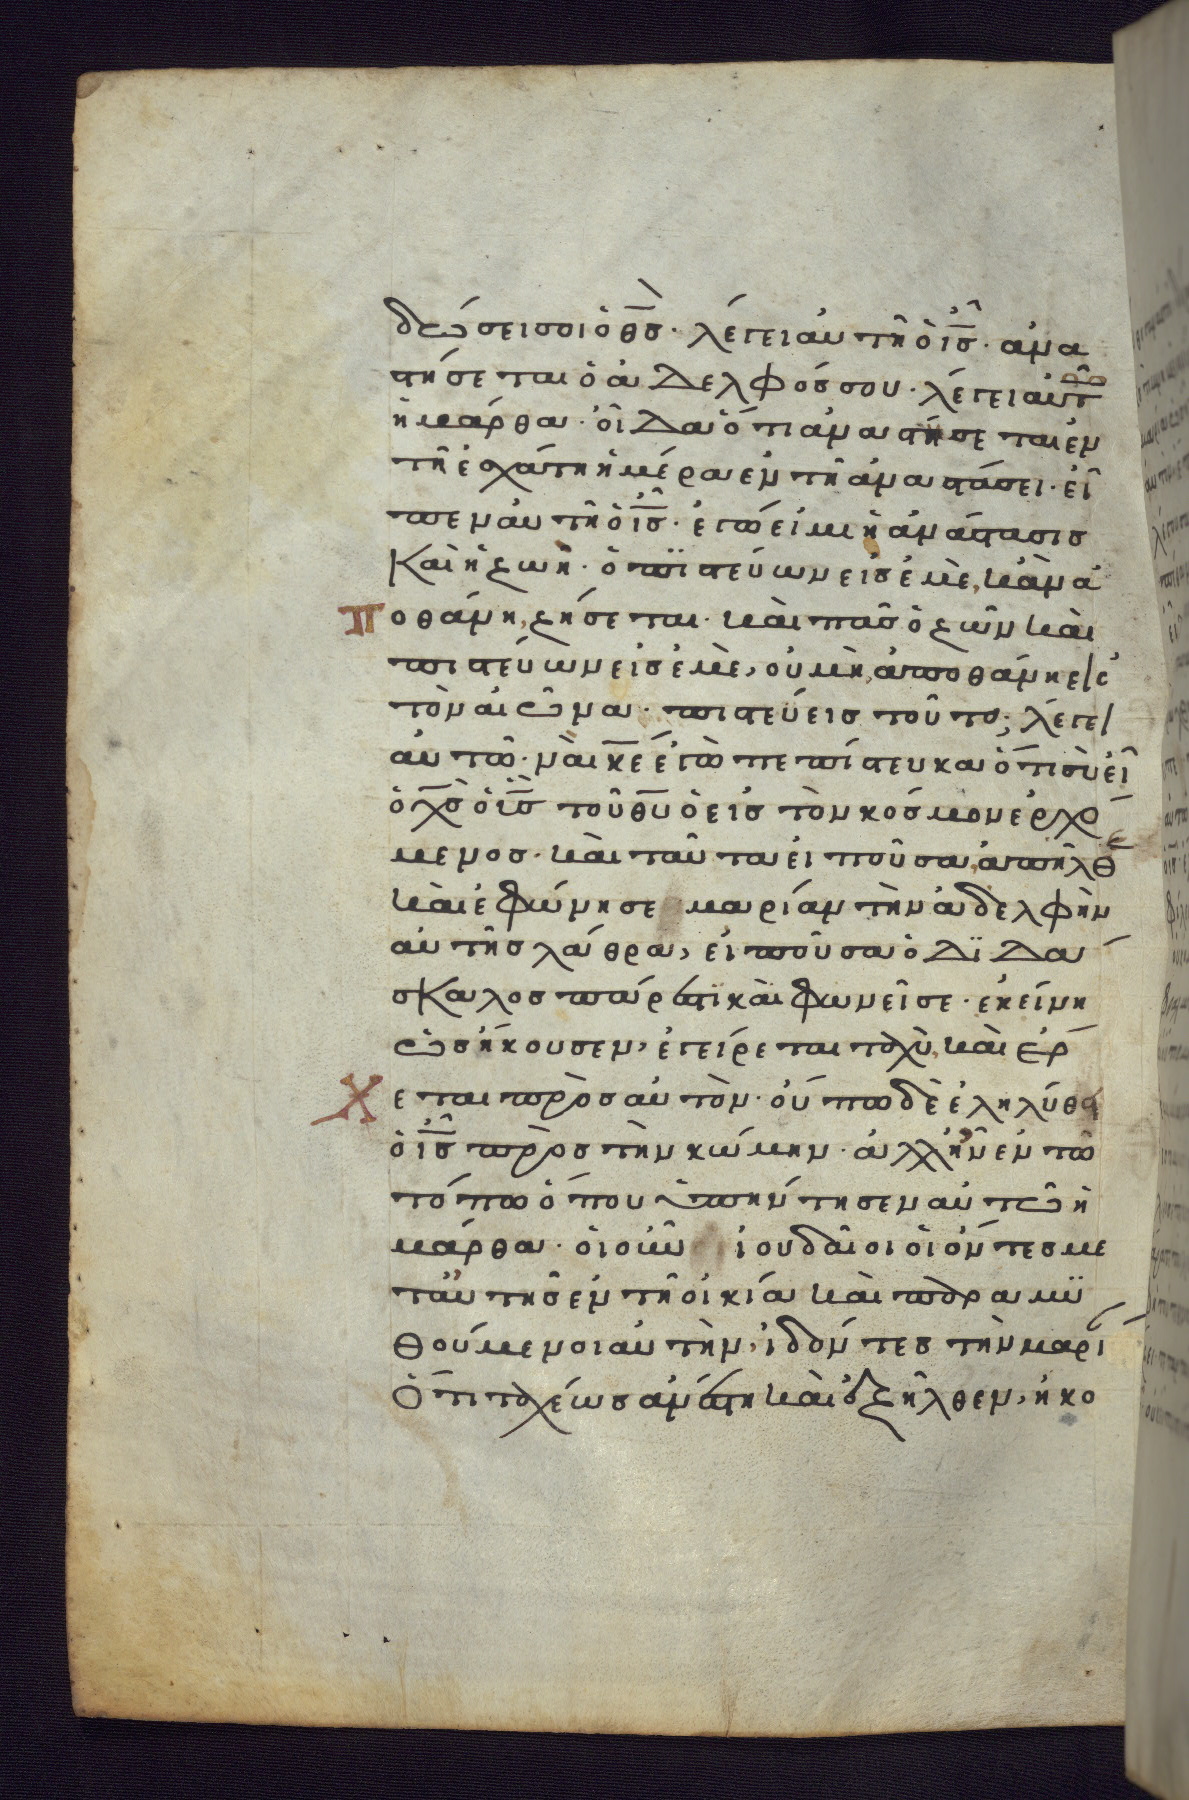 δώσει σοι ὁ θ̅ς̅. λέγει αὐτῆ ὁ ι̅ς̅. ἀνα
στήσεται ὁ ἀδελφός σου. λέγει αὐτῶ
ἡ μάρθα. οἶδα ὅτι ἀναστήσεται ἐν
τῆ ἐσχάτη ἡμέρα ἐν τῆ ἀναστάσει. εἶ
πεν αὐτῆ ὁ ι̅ς̅. ἐγώ εἰμι ἡ ἀνάστασις
Καὶ ἡ ζωή. ὁ πϊστεύων εἰς ἐμὲ, κἂν ἀ
ποθάνη, ζήσεται. καὶ πᾶς ὁ ζῶν καὶ
πιστεύων εἰς ἐμὲ, οὐ μὴ ἀποθάνη εἰς
τὸν αἰῶνα. πιστεύεις τοῦτο; λέγει
αὐτῶ. ναὶ κ̅ε̅ ἐγὼ πεπίστευκα ὅτι σὺ εἶ
ὁ χ̅ς̅ ὁ υ̅ς̅ τοῦ θ̅υ̅ ὁ εἰς τὸν κόσμον ἐρχό
μενος. καὶ ταῦτα εἰποῦσα, ἀπῆλθε
καὶ ἐφώνησε μαρίαν τὴν ἀδελφὴν
αὐτῆς λάθρα, εἰποῦσα ὁ Δϊδά
σΚαλος πάρεστϊ καὶ φωνεῖ σε. ἐκείνη
ὡς ἤκουσεν, ἐγείρεται ταχὺ, καὶ ἔρ
χεται πρὸς αὐτὸν. οὔπω δὲ ἐληλύθει
ὁ ι̅ς̅ πρὸς τὴν κώμην. ἀλλ' ἦν ἐν τῶ
τόπω ὅπου ὑπήντησεν αὐτῶ ἡ
μάρθα. οἱ οὖν ἰουδαῖοι οἱ ὄντες με
τ' αὐτῆς ἐν τῆ οἰκία καὶ παραμϋ
θούμενοι αὐτὴν, ἰδόντες τὴν μαρί
Ὅτι ταχέως ἀνέστη καὶ ἐξῆλθεν, ἠκο